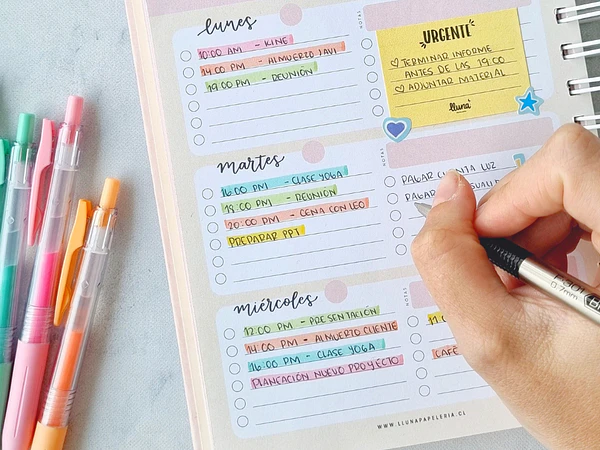 lunes
10:00 AM - KINE
14:00 PM - ALMUERZO JAVI
19:00 PM - REUNIÓN
NOTAS
URGENTE
TERMINAR INFORME
ANTES DE LAS 19:00
ADJUNTAR MATERIAL
lluna
martes
16:00 PM - CLASE YOGA
18:00 PM - REUNIÓN
20:00 PM - CENA CON LEO
PREPARAR PPT
NOTAS
PAGAR CUENTA LUZ
PAGAR
miércoles
12:00 PM - PRESENTACIÓN
14:00 PM - ALMUERZO CLIENTE
16:00 PM - CLASE YOGA
PLANEACIÓN NUEVO PROYECTO
NOTAS
CAFÉ
0.7mm
WWW.LLUNAPAPELERIA.CL